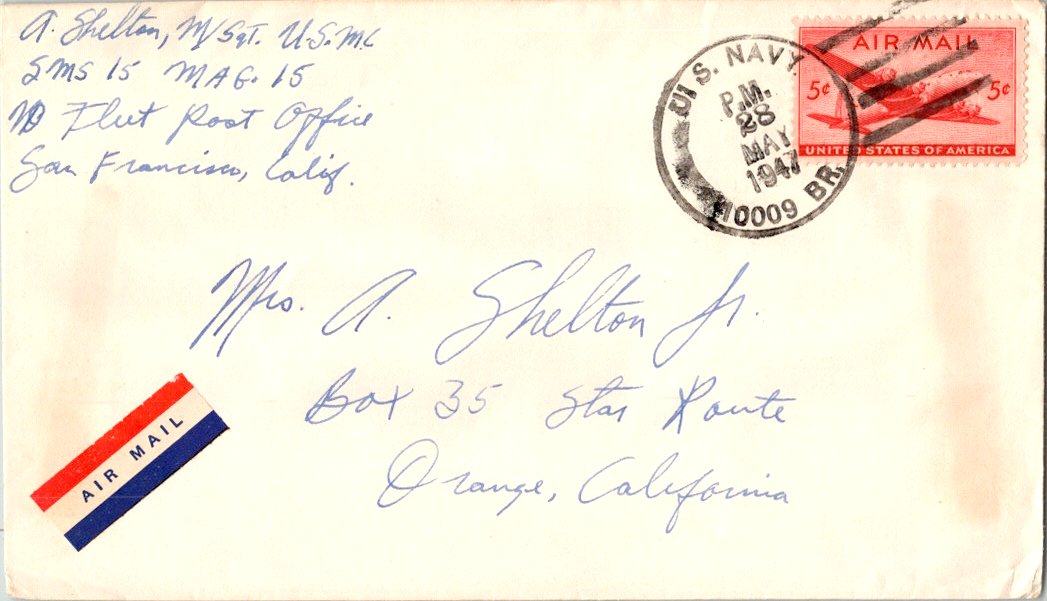 A. Shelton, M/Sgt. U.S.M.C
SMS 15 MAG. 15
℅ Fleet Post Office
San Francisco, Calif.
AIR MAIL
5¢ 5¢
UNITED STATES OF AMERICA
U. S. NAVY
P.M.
28
MAY
1947
10009 BR.
Mrs. A. Shelton Jr.
Box 35 Star Route
Orange, California
AIR MAIL